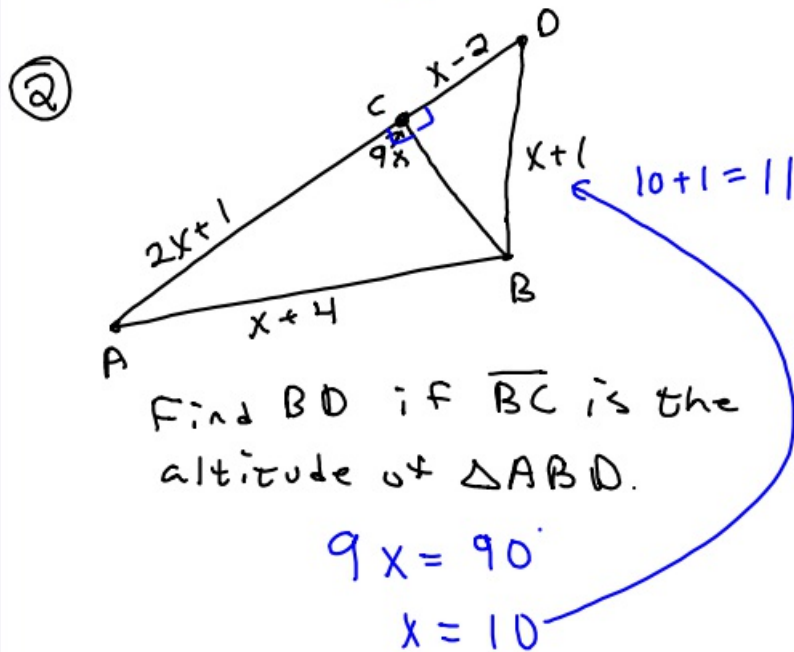 ②
D
x-2
C
9x
x+1
10+1=11
2x+1
B
x+4
A
Find BD if B̅C̅ is the
altitude of △ABD.
9x = 90°
x = 10